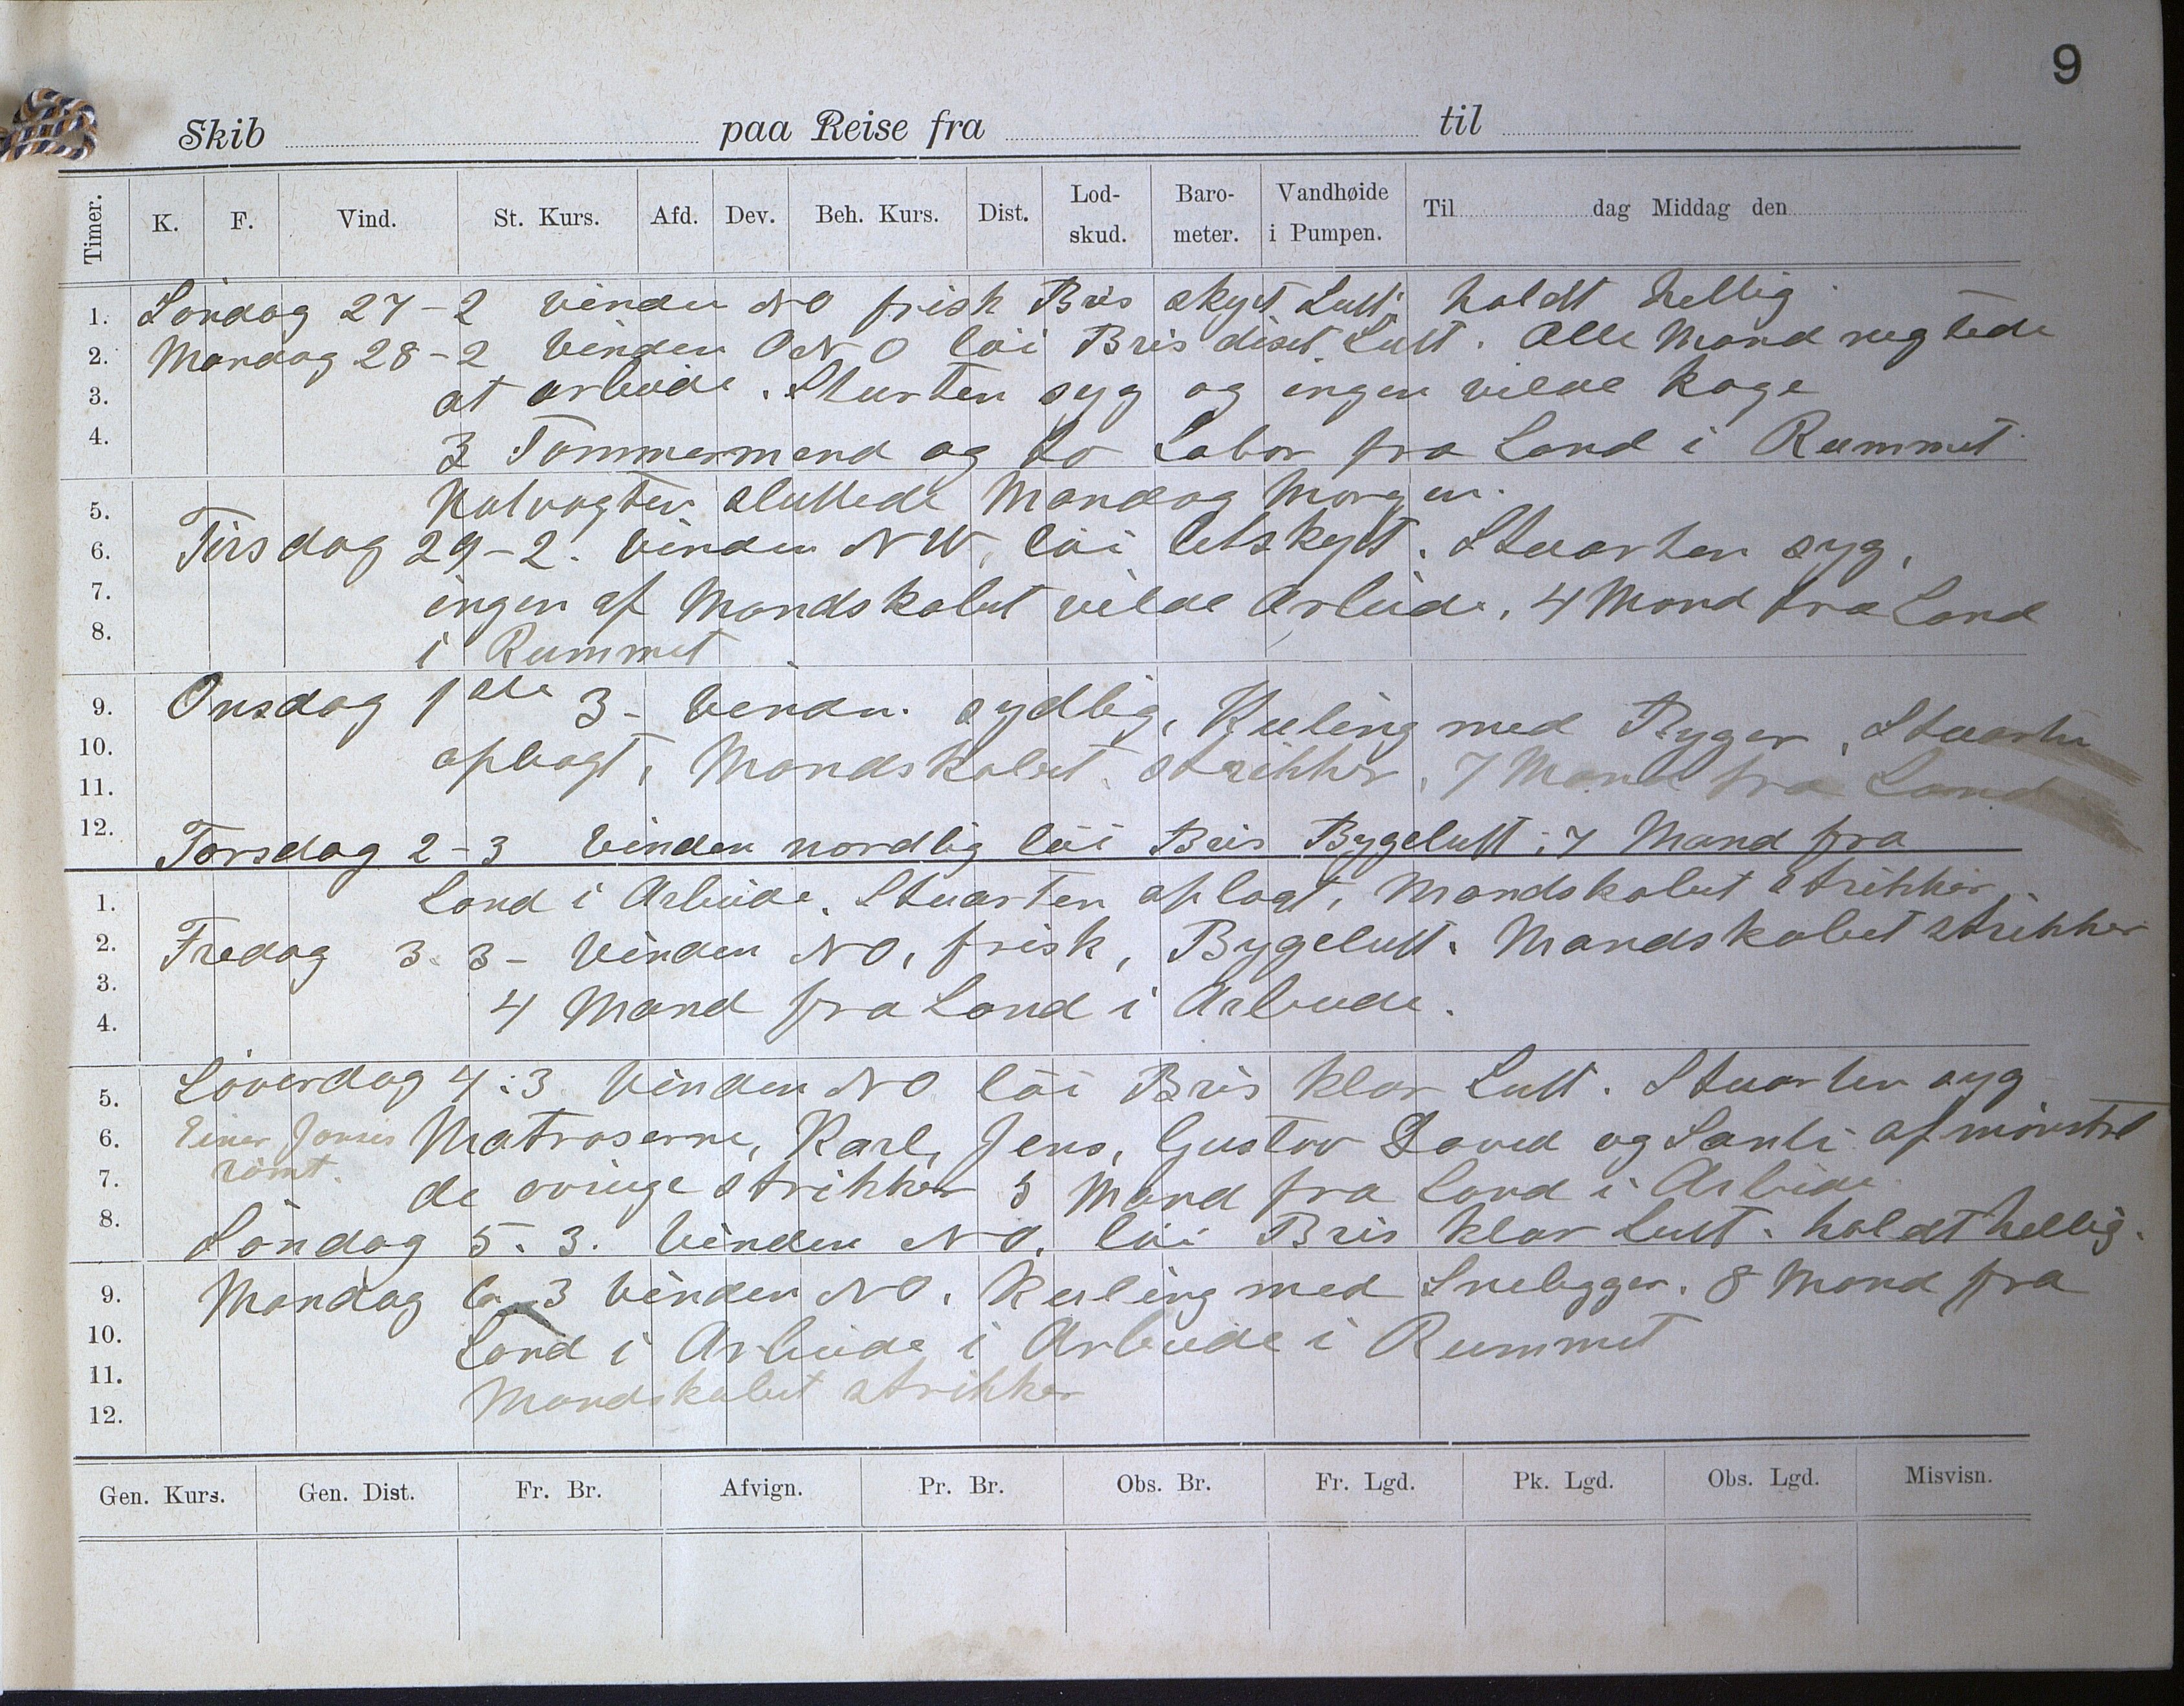 9
Skib paa Reise fra til
Timer. K. F. Vind. St. Kurs. Afd. Dev. Beh. Kurs. Dist. Lod-skud. Baro-meter. Vandhøide i Pumpen. Til dag Middag den
1. Söndag 27-2 Vinden NO frisk Bris skyet Luft. holdt hellig
2. Mandag 28-2 Vinden ONO löi Bris diset Luft. Alle Mand negtede
3. at arbeide. Stuarten syg og ingen vilde koge
4. 3 Tömmermend og to Labor fra Land i Rummet
5. Natvagten sluttede Mandag Morgen.
6. Tirsdag 29-2. Vinden NW, löi letskyet. Stuarten syg,
7. ingen af Mandskabet vilde Arbeide, 4 Mand fra Land
8. i Rummet
9. Onsdag 1ste 3- Vinden sydlig, Kuling med Byger, Stuarten
10. oplagt, Mandskabet strikker, 7 Mand fra Land
11.
12. Torsdag 2-3 Vinden nordlig löi Bris Bygeluft; 7 Mand fra
1. Land i Arbeide. Stuarten oplagt, Mandskabet strikker.
2. Fredag 3.3- Vinden NO, frisk, Bygeluft. Mandskabet strikker
3. 4 Mand fra Land i Arbeide.
4.
5. Löverdag 4.3. Vinden NO löi Bris klar Luft. Stuarten syg
6. Einer Jonsen Matroserne, Karl, Jens, Gustav David og Santi afmönstret
7. römt. de övrige strikker 5 Mand fra Land i Arbeide
8. Söndag 5.3. Vinden NO. löi Bris klar Luft. holdt hellig.
9. Mandag 6.3 Vinden NO. Kuling med Snebygger. 8 Mand fra
10. Land i Arbeide i Arbeide i Rummet
11. Mandskabet strikker
12.
Gen. Kurs. Gen. Dist. Fr. Br. Afvign. Pr. Br. Obs. Br. Fr. Lgd. Pk. Lgd. Obs. Lgd. Misvisn.